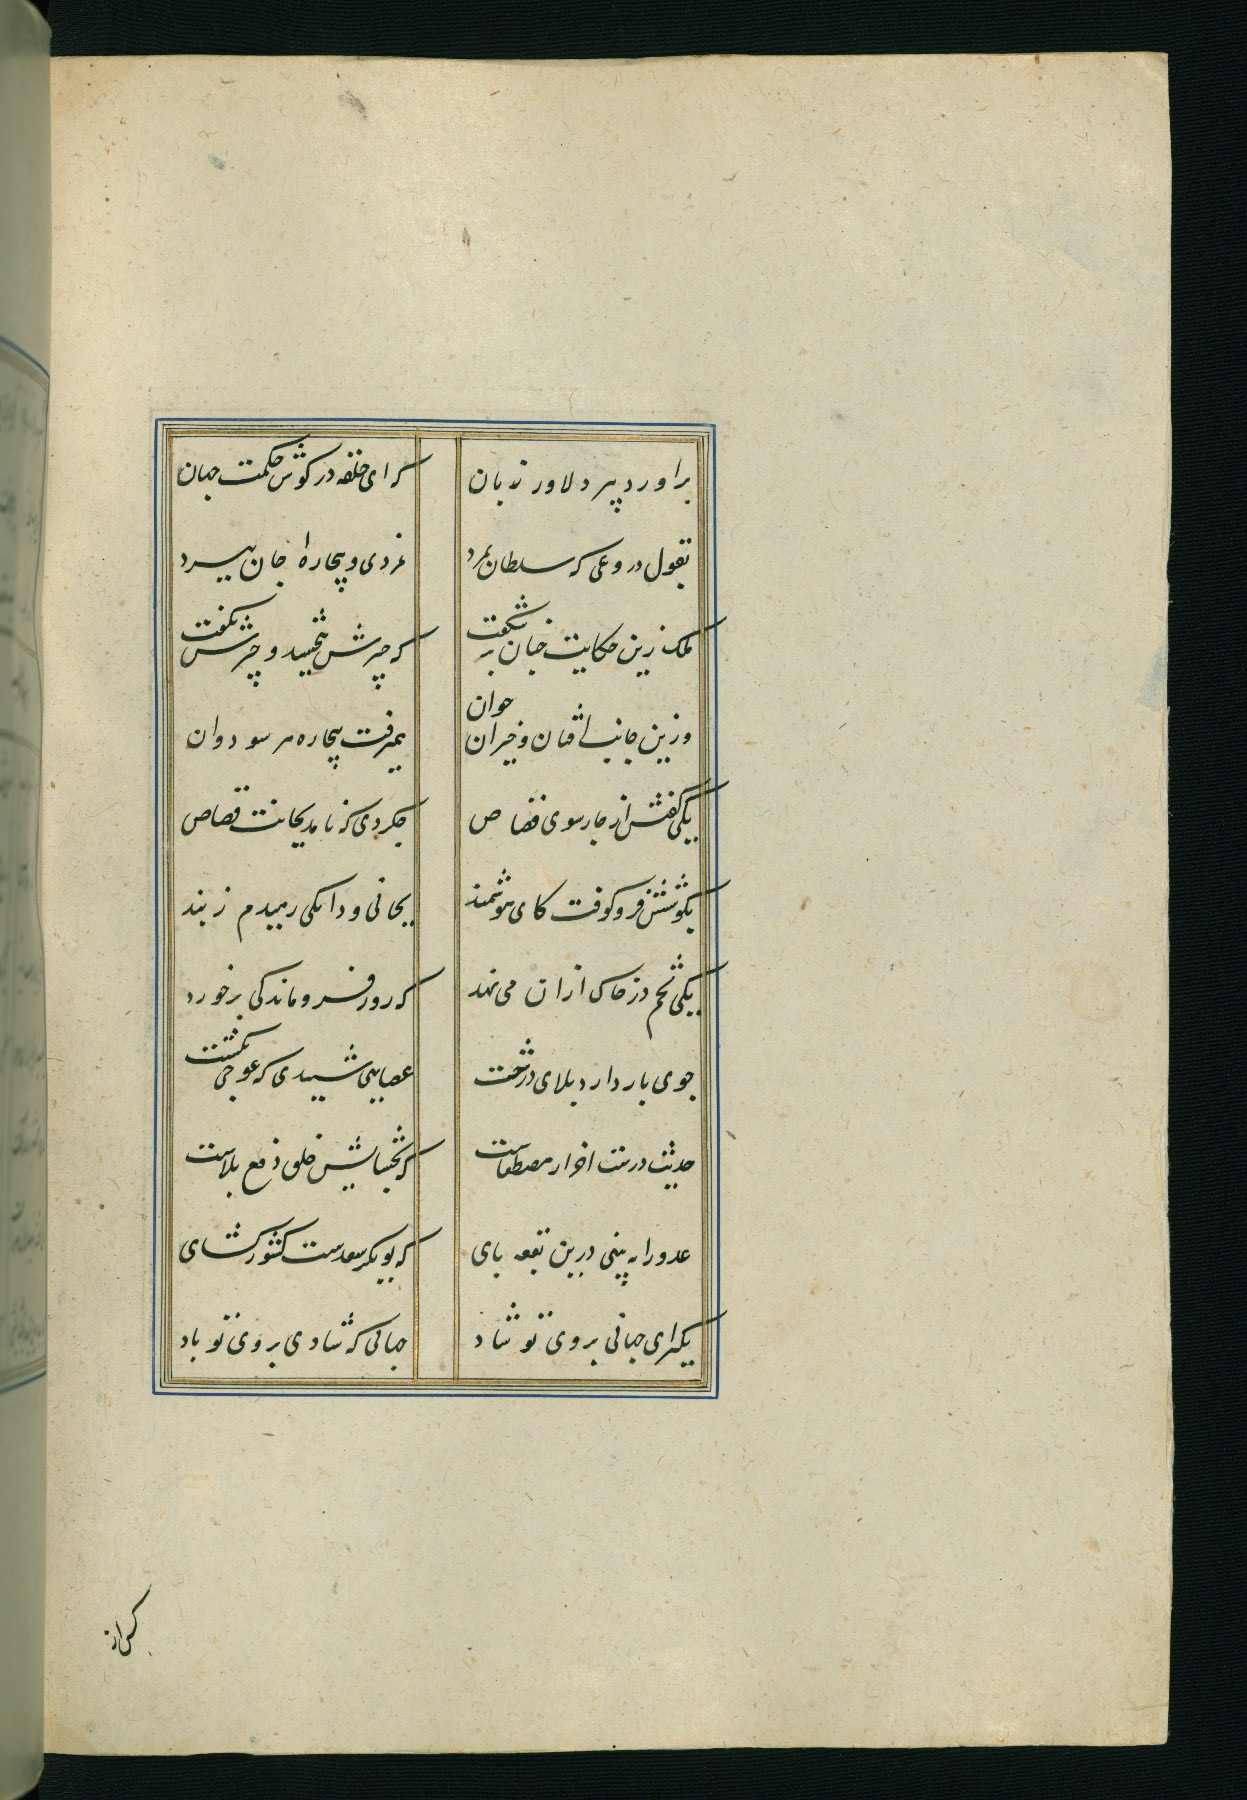 براورد پیر دلاور زبان
که ای حلقه در گوش حکمت جهان
بقول دروغی که سلطان بمرد
نمردی و بیچاره جان ببرد
ملک زین حکایت چنان بر شگفت
که چیزش ببخشید و چیزش نگفت
وزین جانب افتان و خیزان جوان
همیرفت بیچاره هر سو دوان
یکی گفتش از چارسوی قصاص
چکردی که نامد بجانت قصاص
بگوشش فرو کوفت کای هوشمند
بجانی و دانکی رهیدم ز بند
یکی تخم در خاک ازان می نهد
که روز فروماندگی برخورد
جوی باز دارد بلای درشت
عصایی شنیدی که عوجی بکشت
حدیث درست اخر از مصطفاست
که بخشایش خلق دفع بلاست
عدو را نه بینی درین بقعه پای
که بوبکر سعدست کشورکشای
بگیر ای جهانی بروی تو شاد
جهانی که شادی بروی تو باد
کس از